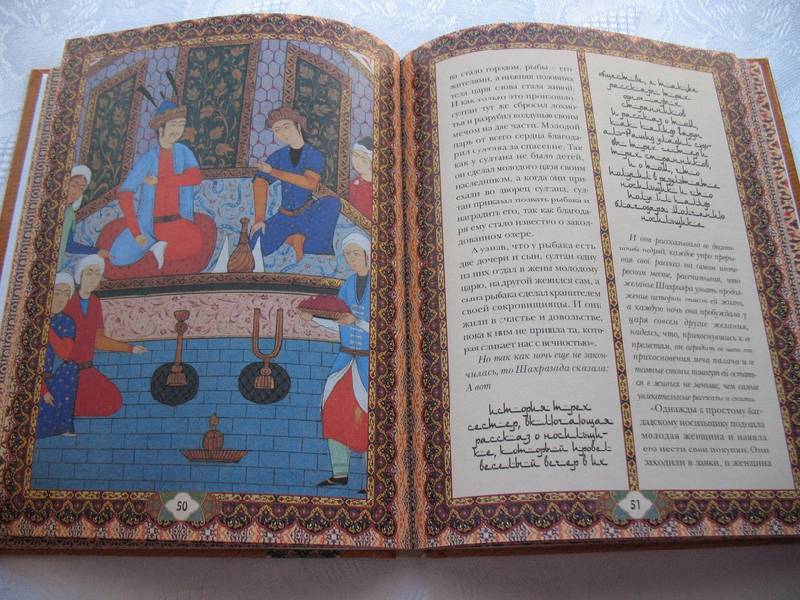 50
ва стало городом, рыбы — его
жителями, а нижняя половина
тела царя снова стала живой.
И как только это произошло,
султан тут же сбросил лохмо-
тья и разрубил колдунью своим
мечом на две части. Молодой
царь от всего сердца благода-
рил султана за спасение. Так
как у султана не было детей,
он сделал молодого царя своим
наследником, а когда они при-
ехали во дворец султана, сул-
тан приказал позвать рыбака и
наградить его, так как благода-
ря ему стало известно о закол-
дованном озере.
А узнав, что у рыбака есть
две дочери и сын, султан одну
из них отдал в жены молодому
царю, на другой женился сам, а
сына рыбака сделал хранителем
своей сокровищницы. И они
жили в счастье и довольстве,
пока к ним не пришла та, кото-
рая сливает нас с вечностью».
Но так как ночь еще не закон-
чилась, то Шахразада сказала:
А вот
история трех
сестер, включающая
рассказ о носильщи-
ке, который провел
веселый вечер в их
обществе, а также
рассказы трех
одноглазых
странников
и рассказ о том,
как халиф Харун
ар-Рашид
трех странников,
и о том, что
носильщик и что
халиф
благодаря
носильщика
И она рассказывала ее
ночей подряд, каждое утро преры-
вая свой рассказ на самом инте-
ресном месте, рассчитывая, что
желанье Шахрияра узнать продол-
жение истории спасет ей жизнь,
а каждую ночь она пробуждала у
царя совсем другие желания,
надеясь, что, прикоснувшись к ее
прелестям, он оградит ее шею от
прикосновения меча палача и ее
томные стоны помогут ей остать-
ся в живых не меньше, чем самые
увлекательные рассказы и сказки.
«Однажды к простому баг-
дадскому носильщику подошла
молодая женщина и наняла
его нести свои покупки. Они
заходили в лавки, и женщина
51